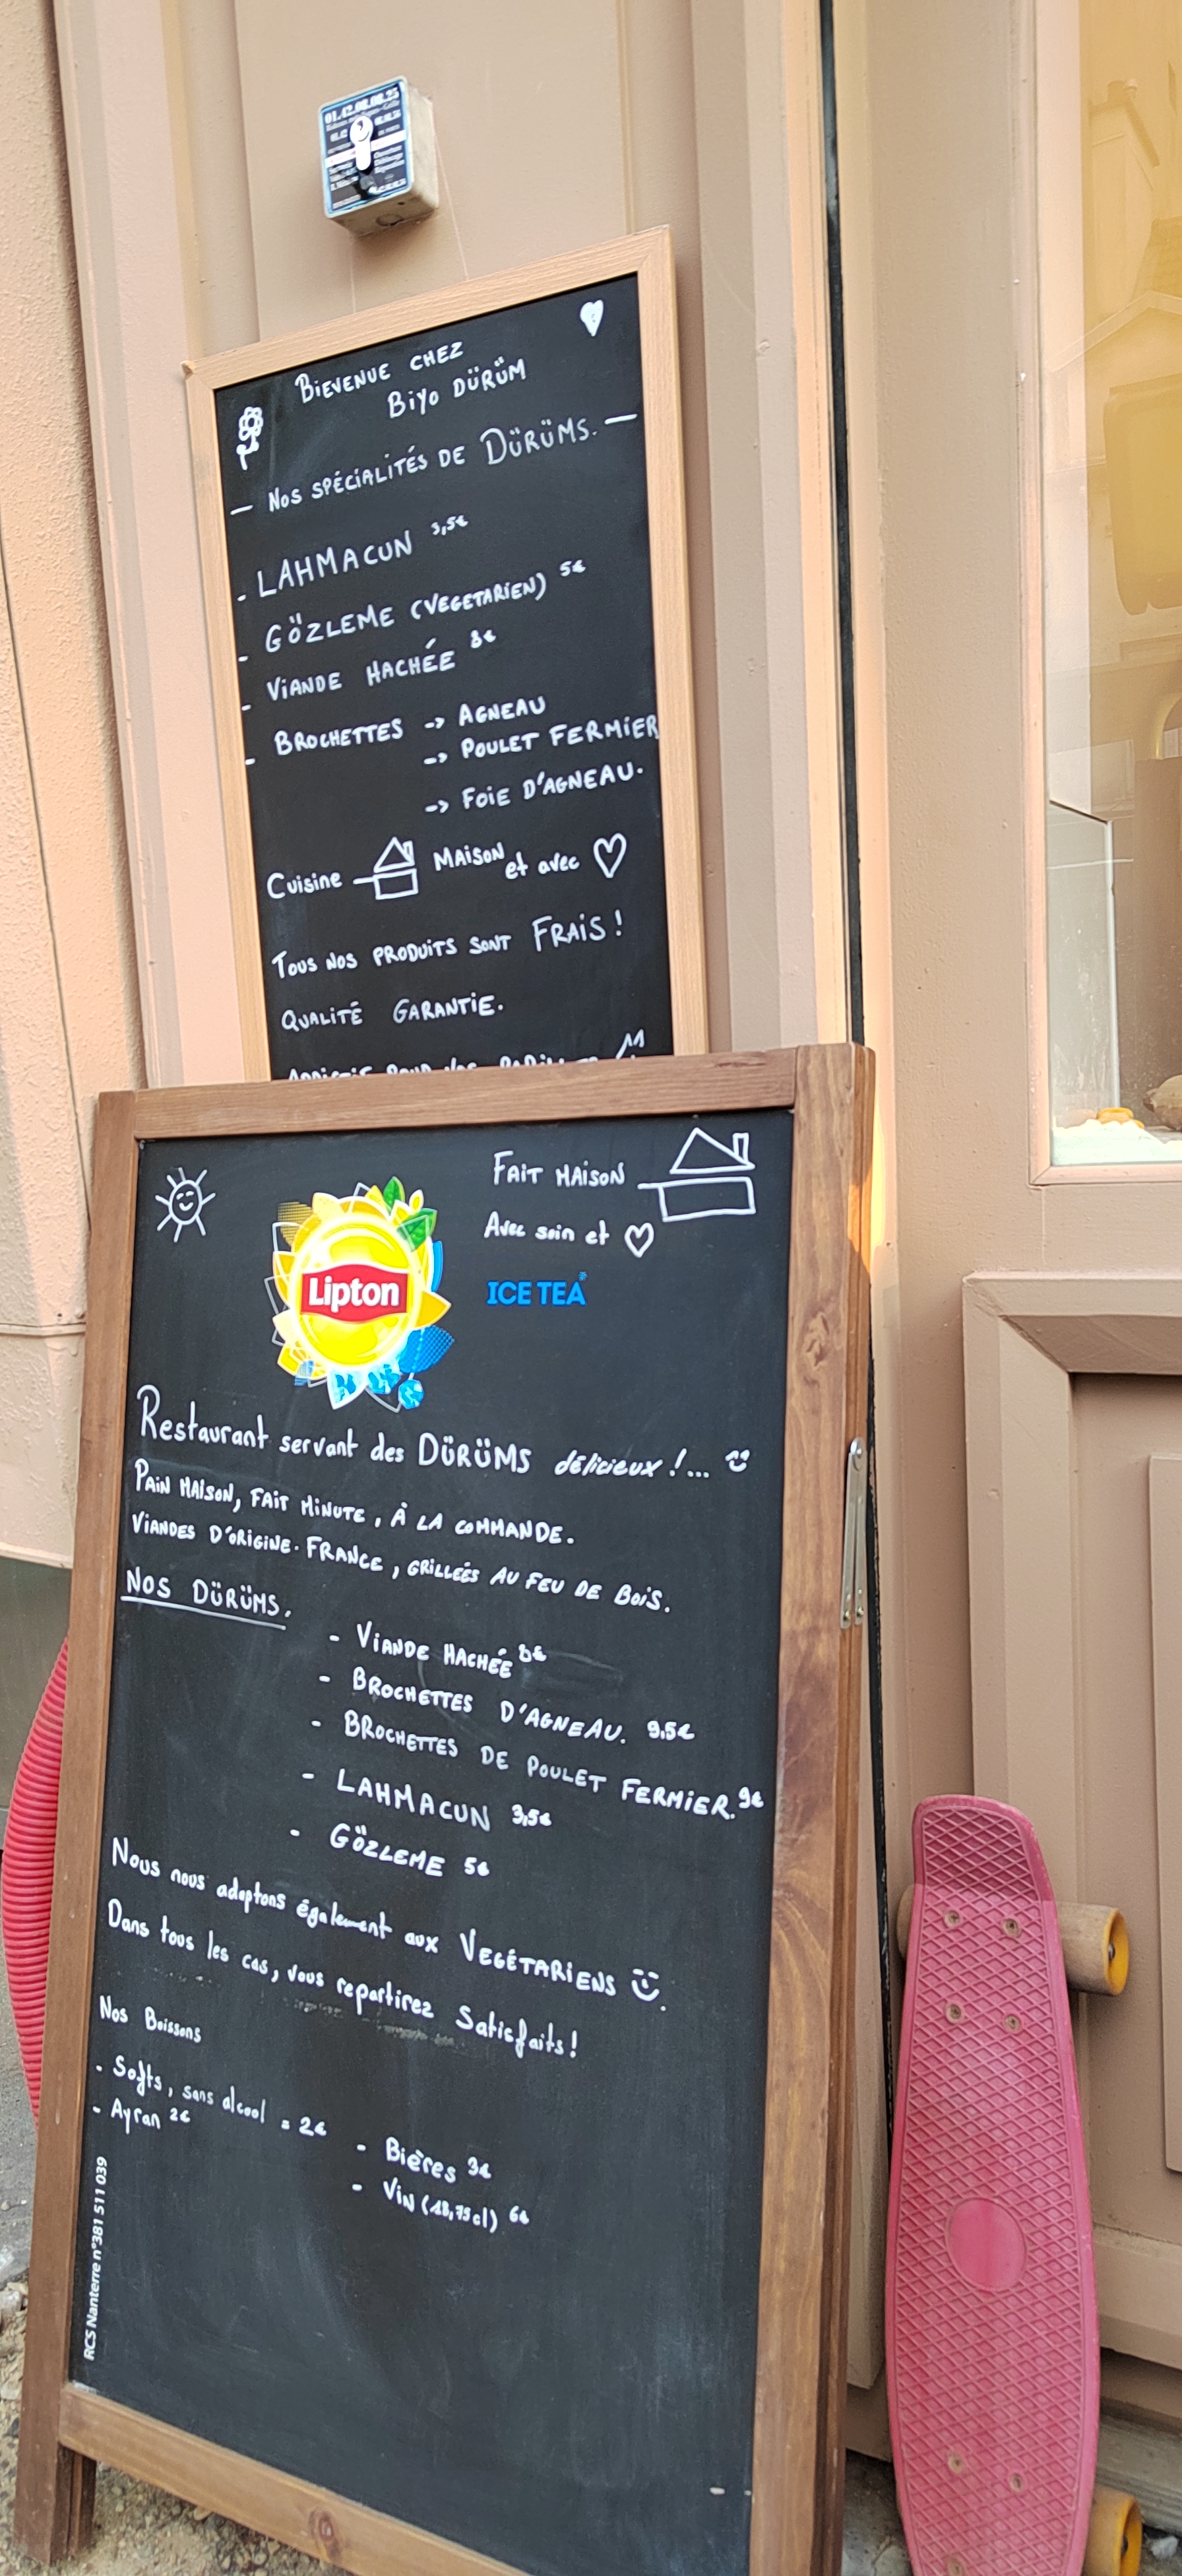 01.42.08.08.25
BiEVENUE CHEZ
BiYo DÜRÜM
— NOS SPÉCIALITÉS DE DÜRÜMS. —
- LAHMACUN 3,5€
- GÖZLEME (VEGETARIEN) 5€
- VIANDE HACHÉE 8€
- BROCHETTES -> AGNEAU
-> POULET FERMIER
-> FOIE D'AGNEAU.
Cuisine MAISON et avec ♡
TOUS NOS PRODUITS SONT FRAIS !
QUALITÉ GARANTIE.
FAIT MAISON
Avec soin et ♡
Lipton
ICE TEA
Restaurant servant des DÜRÜMS délicieux !...
PAIN MAISON, FAIT MINUTE, À LA COMMANDE.
VIANDES D'ORIGINE. FRANCE, GRILLEÉS AU FEU DE BOIS.
NOS DÜRÜMS.
- VIANDE HACHÉE 8€
- BROCHETTES D'AGNEAU. 9,5€
- BROCHETTES DE POULET FERMIER. 9€
- LAHMACUN 3,5€
- GÖZLEME 5€
Nous nous adaptons également aux VEGÉTARIENS
Dans tous les cas, vous repartirez Satisfaits!
Nos Boissons
- Softs, sans alcool = 2€
- Ayran 2€
- Bières 3€
- Vin (18,75cl) 6€
RCS Nanterre n°381 511 039